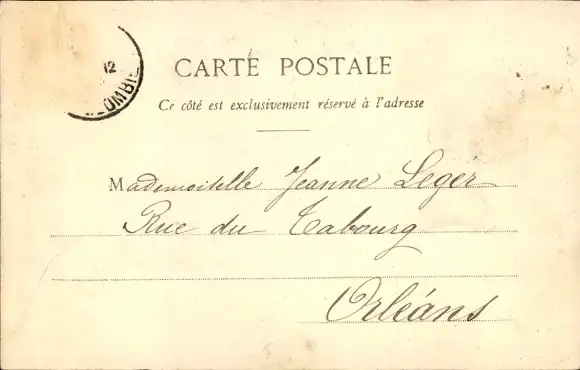 12
OMBIE
CARTE POSTALE
Ce côté est exclusivement réservé à l'adresse
Mademoiselle Jeanne Leger
Rue du Tabourg
Orléans